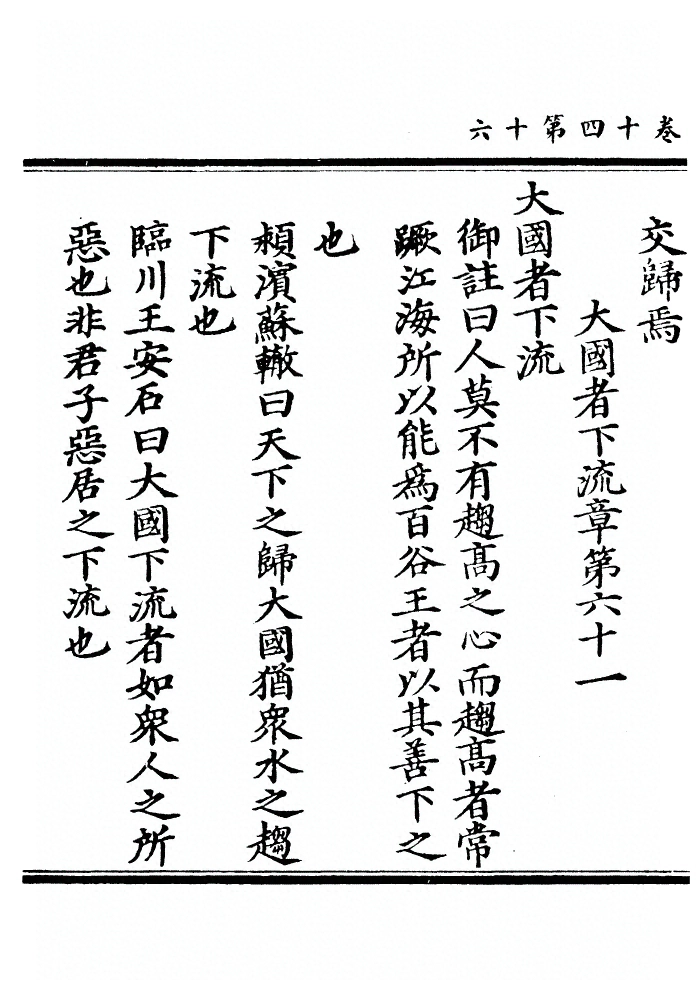 卷十四第十六
交歸焉
大國者下流章第六十一
大國者下流
御註曰人莫不有趨高之心而趨高者常
蹶江海所以能爲百谷王者以其善下之
也
頴濱蘇轍曰天下之歸大國猶衆水之趨
下流也
臨川王安石曰大國下流者如衆人之所
惡也非君子惡居之下流也